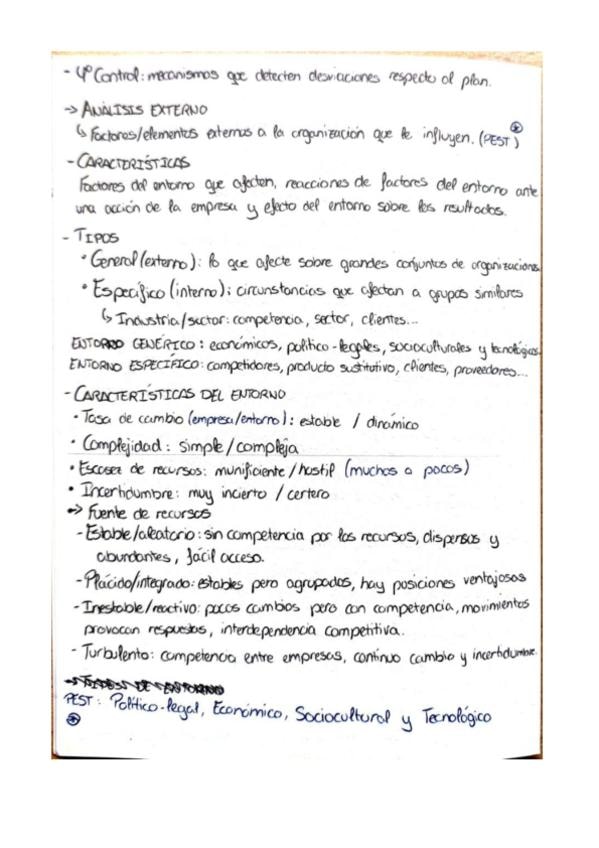 - 4º Control: mecanismos que detecten desviaciones respecto al plan.
→ ANÁLISIS EXTERNO
↳ Factores/elementos externos a la organización que le influyen. (PEST*)
- CARACTERÍSTICAS
Factores del entorno que afecten, reacciones de factores del entorno ante
una acción de la empresa y efecto del entorno sobre los resultados.
- TIPOS
• General (externo): lo que afecte sobre grandes conjuntos de organizaciones
• Específico (interno): circunstancias que afectan a grupos similares
↳ Industria/sector: competencia, sector, clientes...
ENTORNO GENÉRICO: económicos, político-legales, socioculturales y tecnológicos.
ENTORNO ESPECÍFICO: competidores, producto sustitutivo, clientes, proveedores...
- CARACTERÍSTICAS DEL ENTORNO
• Tasa de cambio (empresa/entorno): estable / dinámico
• Complejidad: simple/compleja
• Escasez de recursos: munificiente/hostil (muchos o pocos)
• Incertidumbre: muy incierto / certero
→ Fuente de recursos
- Estable/aleatorio: sin competencia por los recursos, dispersos y
abundantes, fácil acceso.
- Plácido/integrado: estables pero agrupados, hay posiciones ventajosas
- Inestable/reactivo: pocos cambios pero con competencia, movimientos
provocan respuestas, interdependencia competitiva.
- Turbulento: competencia entre empresas, continuo cambio y incertidumbre.
PEST: Político-legal, Económico, Sociocultural y Tecnológico
*